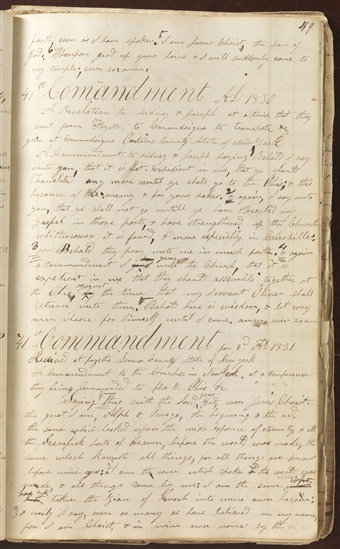 49
forth, even as I have spoken I am Jesus Christ, the Son of
God, Wherefore gird up your loins & I will suddenly come to
my temple, even so, amen.
40th Comandment AD 1830
A Revelation to Sidney & Joseph at a time that they
went from Fayette to Canandaigua to translate &c
give at Canandaigua Ontario County State of New York
A Commandment to Sidney & Joseph saying Behold I say
unto you, that it is not Expedient in me that ye should
translate any more until ye shall go to the Ohio, & this
because of the enemy & for your sakes 2 again I say unto
you, that ye shall not go until ye have Preached my
gospel in those parts & have strengthened up the Church
whithersoever it is found, & more especially in Colesville
3 for Behold they pray unto me in much faith 4 & again
a commandment I give unto the Church, that it is
expedient in me that they should assemble together at
the Ohio, against the time that my Servent Oliver shall
return unto them 5 Behold here is wisdom, & let every
man choose for himself until I come, amen even so amen
41st Commandment Jan 2d AD 1831
Received at Fayette Seneca County State of New York
A Commandment to the Churches in New York, at a conference
they being Commanded to flee to Ohio &c
Saying Thus saith the Lord your God even Jesus Christ
the great I am, Alpha & Omega, the beginning & the end,
the same which looked upon the wide expanse of eternity & all
the Seraphick hosts of Heaven, before the world was made, the
same which knoweth all things, for all things are present
before mine eyes; I am the same which spake & the world was
made & all things came by me; I am the same which
have taken the Zion of Enoch into mine own bosom;
& verily I say, even as many as have believed on my name
for I am Christ, & in mine own name by the